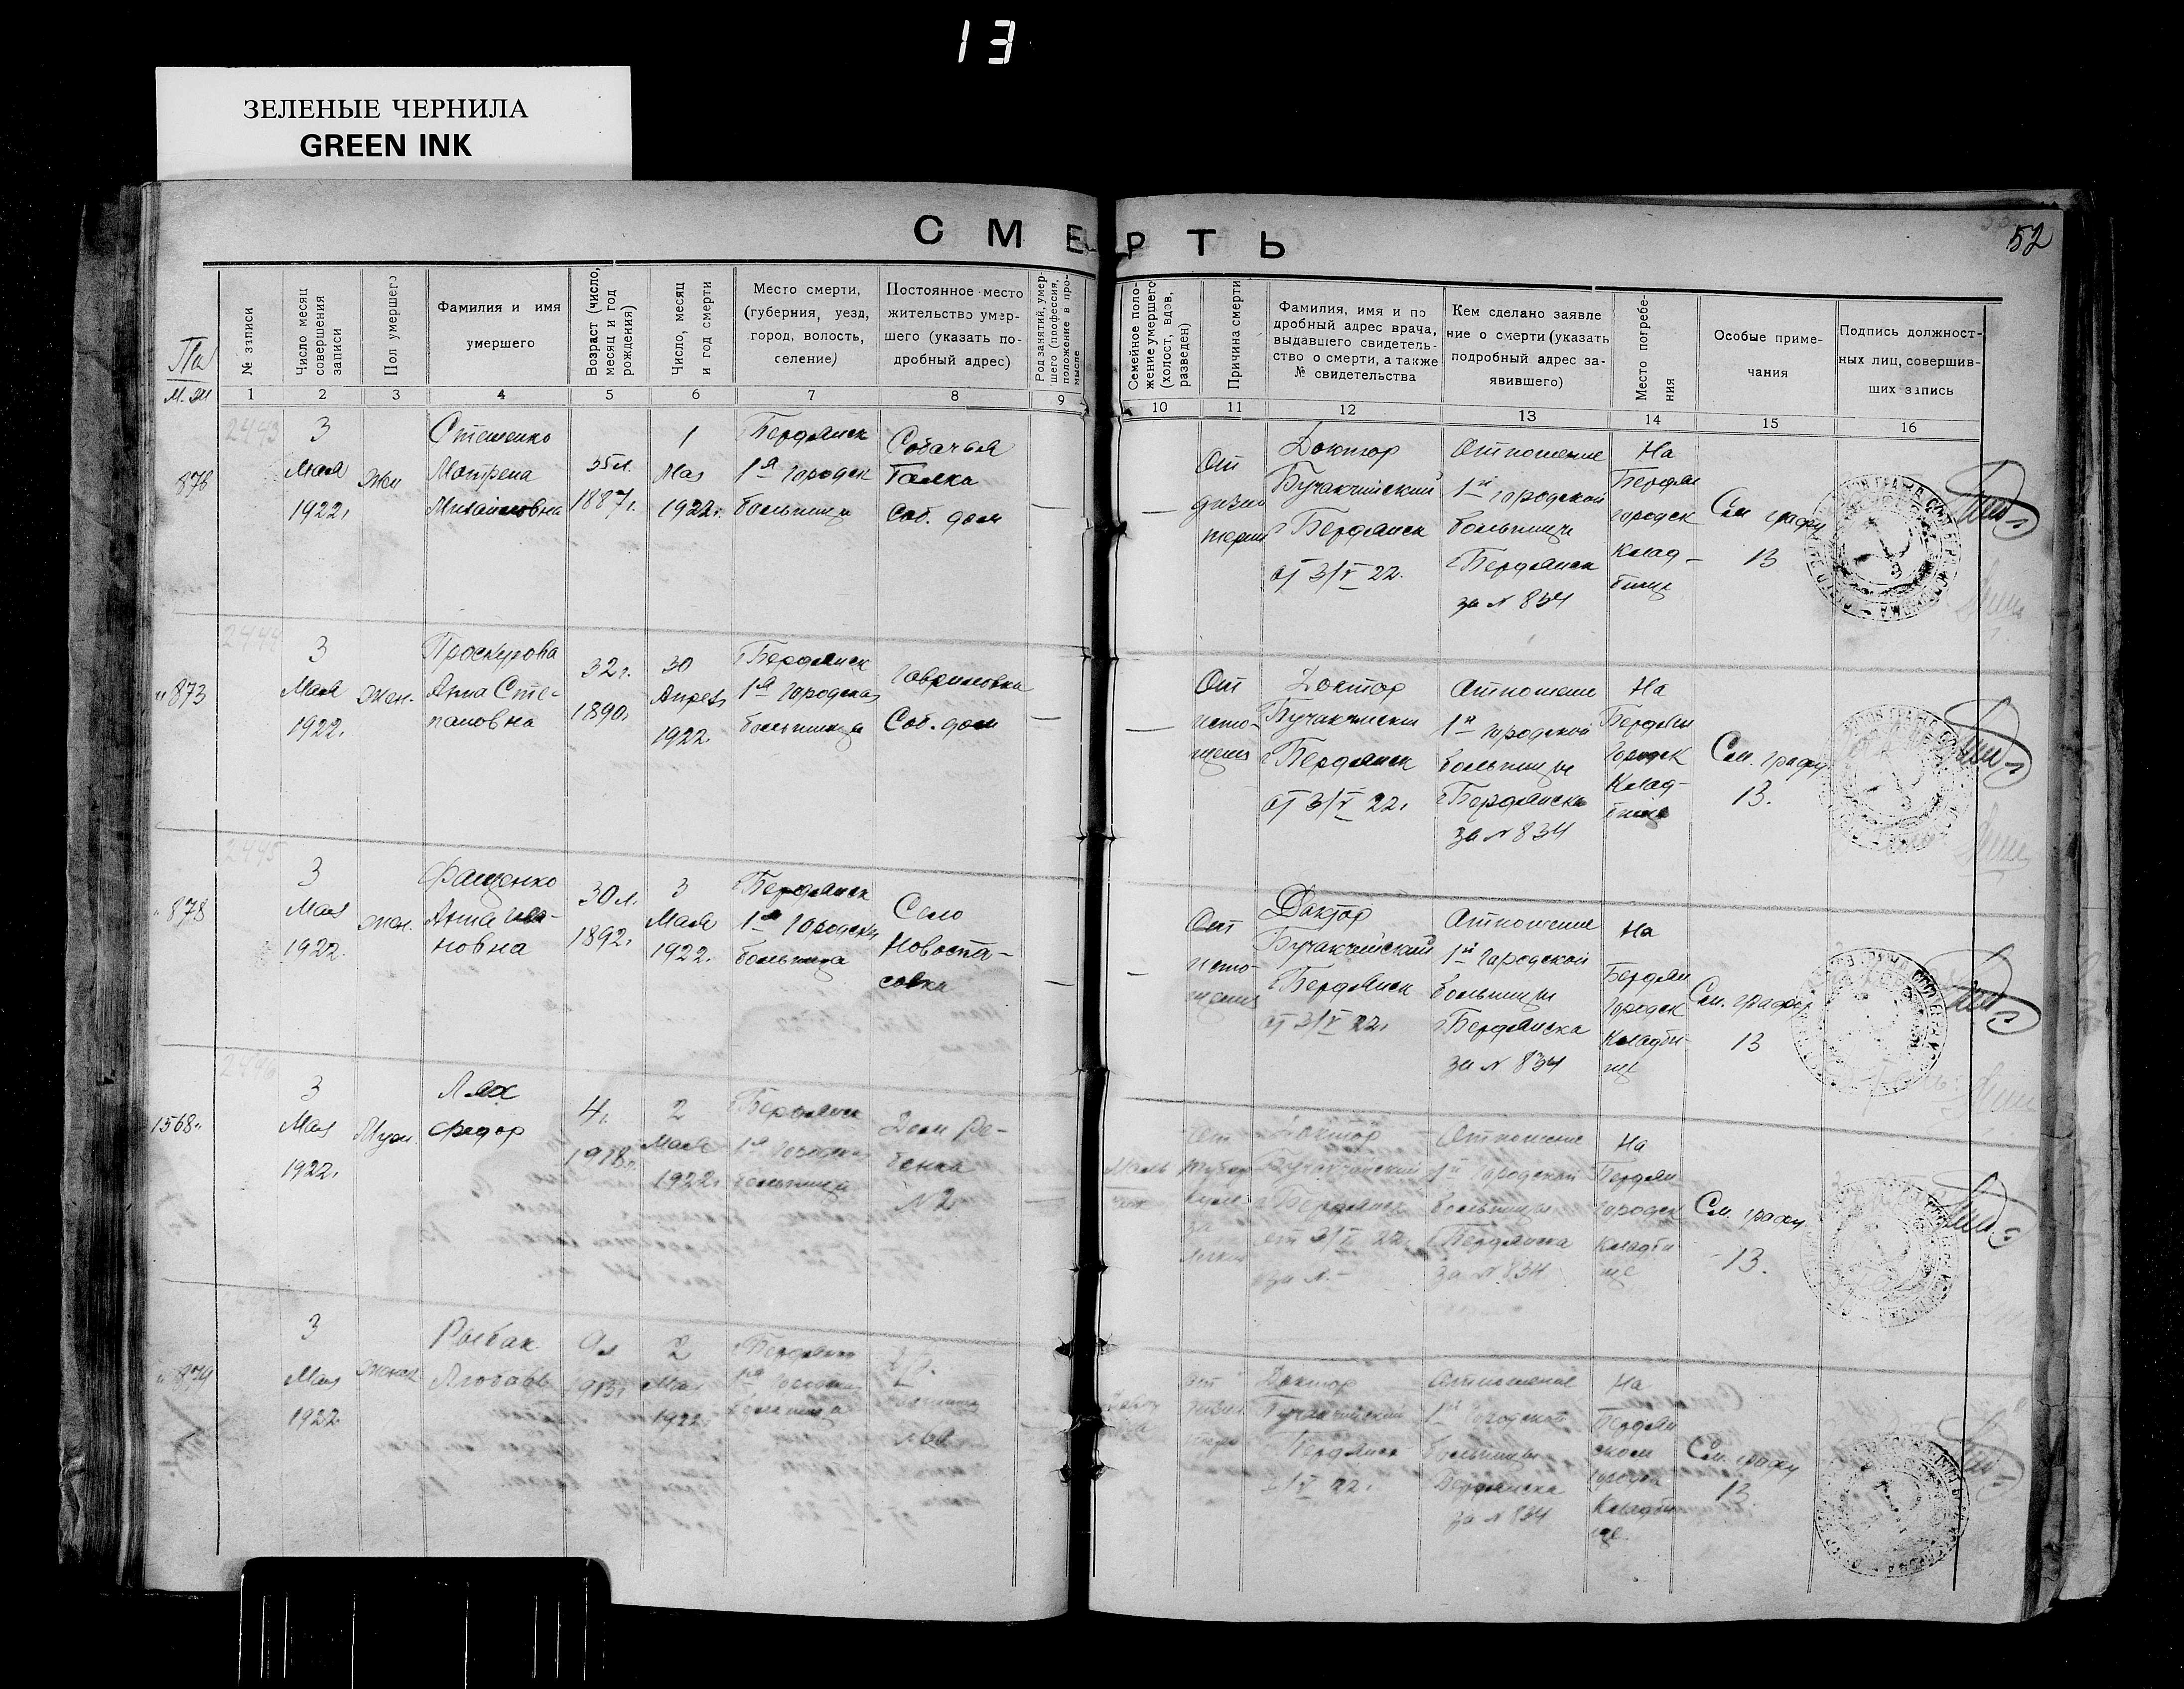 13
ЗЕЛЕНЫЕ ЧЕРНИЛА
GREEN INK
СМЕРТЬ
52
№ записи
Число месяц
совершения
записи
Пол умершего
Фамилия и имя
умершего
Возраст (число,
месяц и год
рождения)
Число, месяц
и год смерти
Место смерти,
(губерния, уезд,
город, волость,
селение)
Постоянное место
жительство умер-
шего (указать по-
дробный адрес)
Род занятий, умер-
шего (профессия,
положение в про-
мысле
Семейное поло-
жение умершего
(холост, вдов,
разведен)
Причина смерти
Фамилия, имя и по
дробный адрес врача,
выдавшего свидетель-
ство о смерти, а также
№ свидетельства
Кем сделано заявле
ние о смерти (указать
подробный адрес за-
явившего)
Место погребе-
ния
Особые приме-
чания
Подпись должност-
ных лиц, совершив-
ших запись
1 2 3 4 5 6 7 8 9 10 11 12 13 14 15 16
2443
878
3
Мая
1922г
Жен
Стешенко
Мотрена
Михайловна
35л.
1887г.
1
Мая
1922г.
г Бердянск
1я городск
больница
Собачья
Балка
Соб. дом
—
—
От
дизен
терии
Доктор
Бучакчийский
г Бердянск
от 3/V 22.
Отношение
1й городской
больницы
г Бердянск
за N 834
На
Бердян
городск
клад-
бище
См графу
13
2444
"873
3
Мая
1922г.
Жен.
Проскурова
Анна Сте-
пановна
32г.
1890г
30
Апреля
1922
г Бердянск
1я городская
больница
Гавриловка
Соб. дом
—
—
От
исто-
щения
Доктор
Бучакчийский
г Бердянск
от 3/V 22г
Отношение
1й городской
больницы
г Бердянска
за N 834
На
Бердян
городск
клад-
бище
См. графу
13.
2445
"878
3
Мая
1922
жен.
Фащенко
Анна Ива-
новна
30л.
1892г
3
Мая
1922.
г Бердянск
1я городск
больница
Село
Новоспа-
совка
—
—
От
исто-
щения
Доктор
Бучакчийский
г Бердянск
от 3/V 22г
Отношение
1й городской
больницы
г Бердянска
за N 834
На
Бердян
городск
кладби-
ще
См. графу
13
2446
1568"
3
Мая
1922г.
Муж.
Лях
Федор
4г.
1918г.
2
Мая
1922г
г Бердянск
1я городск
больница
Дом Ре-
бенка
N 2
Маль
чик
От
тубер
куле
за
легких
Доктор
Бучакчийский
г Бердянск
от 3/V 22г
за N.-
Отношение
1й городской
больницы
г Бердянска
за N 834
На
Бердян
городск
кладби
ще
См. графу
13.
"879
3
Мая
1922
женск
Рыбак
Любовь
9л
1913г
2
Мая
1922г
г Бердянск
1я городск
больница
от
Доктор
Бучакчийский
Бердянск
3/V 22г.
Отношение
1й городской
больницы
Бердянска
за N 834
На
Бердян
ском
городск
кладби
ще
См. графу
13.